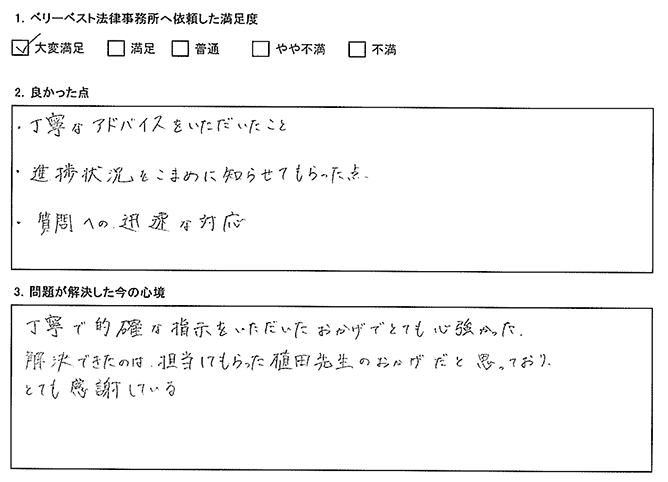 1. ベリーベスト法律事務所へ依頼した満足度
☑ 大変満足 □ 満足 □ 普通 □ やや不満 □ 不満
2. 良かった点
・丁寧なアドバイスをいただいたこと
・進捗状況をこまめに知らせてもらった点.
・質問への迅速な対応
3. 問題が解決した今の心境
丁寧で的確な指示をいただいたおかげでとても心強かった.
解決できたのは、担当してもらった植田先生のおかげだと思っており、
とても感謝している